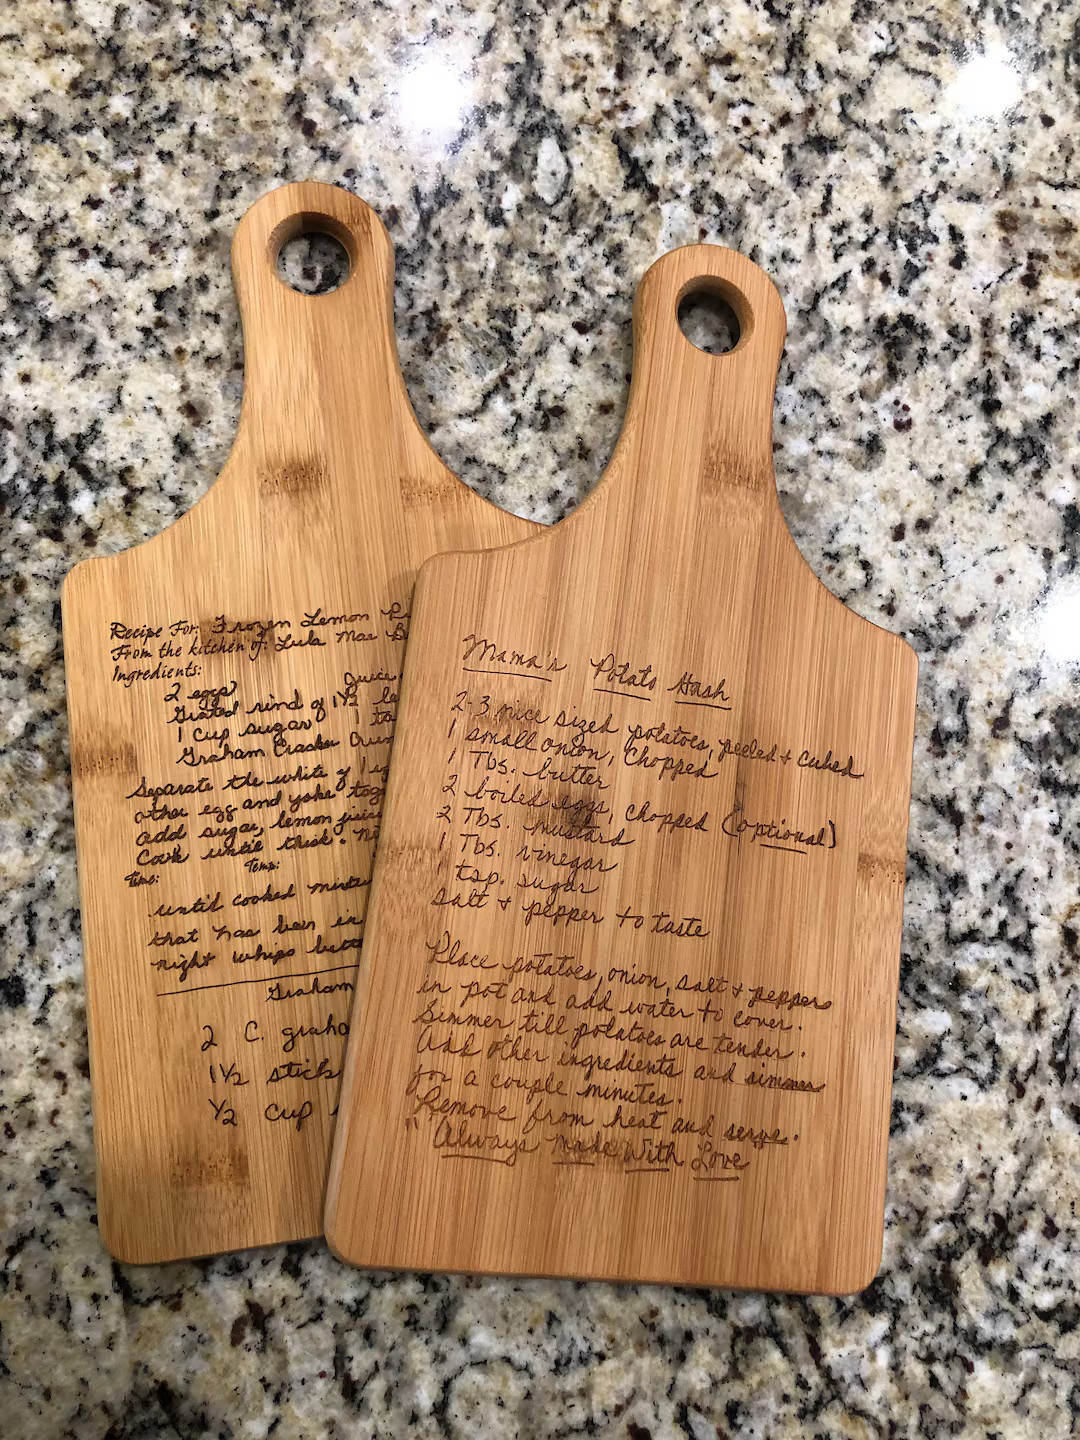 Recipe For: Frozen Lemon
From the kitchen of: Lula Mae
Ingredients:
2 eggs Juice
Grated rind of 1½
1 cup sugar 1
Graham Cracker
Separate the white of 1
other egg and yoke
add sugar, lemon juice
Cook until thick.
Time: Temp:
until cooked
that has been in
right whips
Graham
2 C.
1½ stick
½ cup
Mama's Potato Hash
2-3 nice sized potatoes, peeled + cubed
1 small onion, Chopped
1 Tbs. butter
2 boiled eggs, chopped (optional)
2 Tbs. mustard
1 Tbs. vinegar
1 tsp. sugar
salt + pepper to taste
Place potatoes, onion, salt + peppers
in pot and add water to cover.
Simmer till potatoes are tender.
Add other ingredients and simmer
for a couple minutes.
Remove from heat and serve.
"Always Made With Love